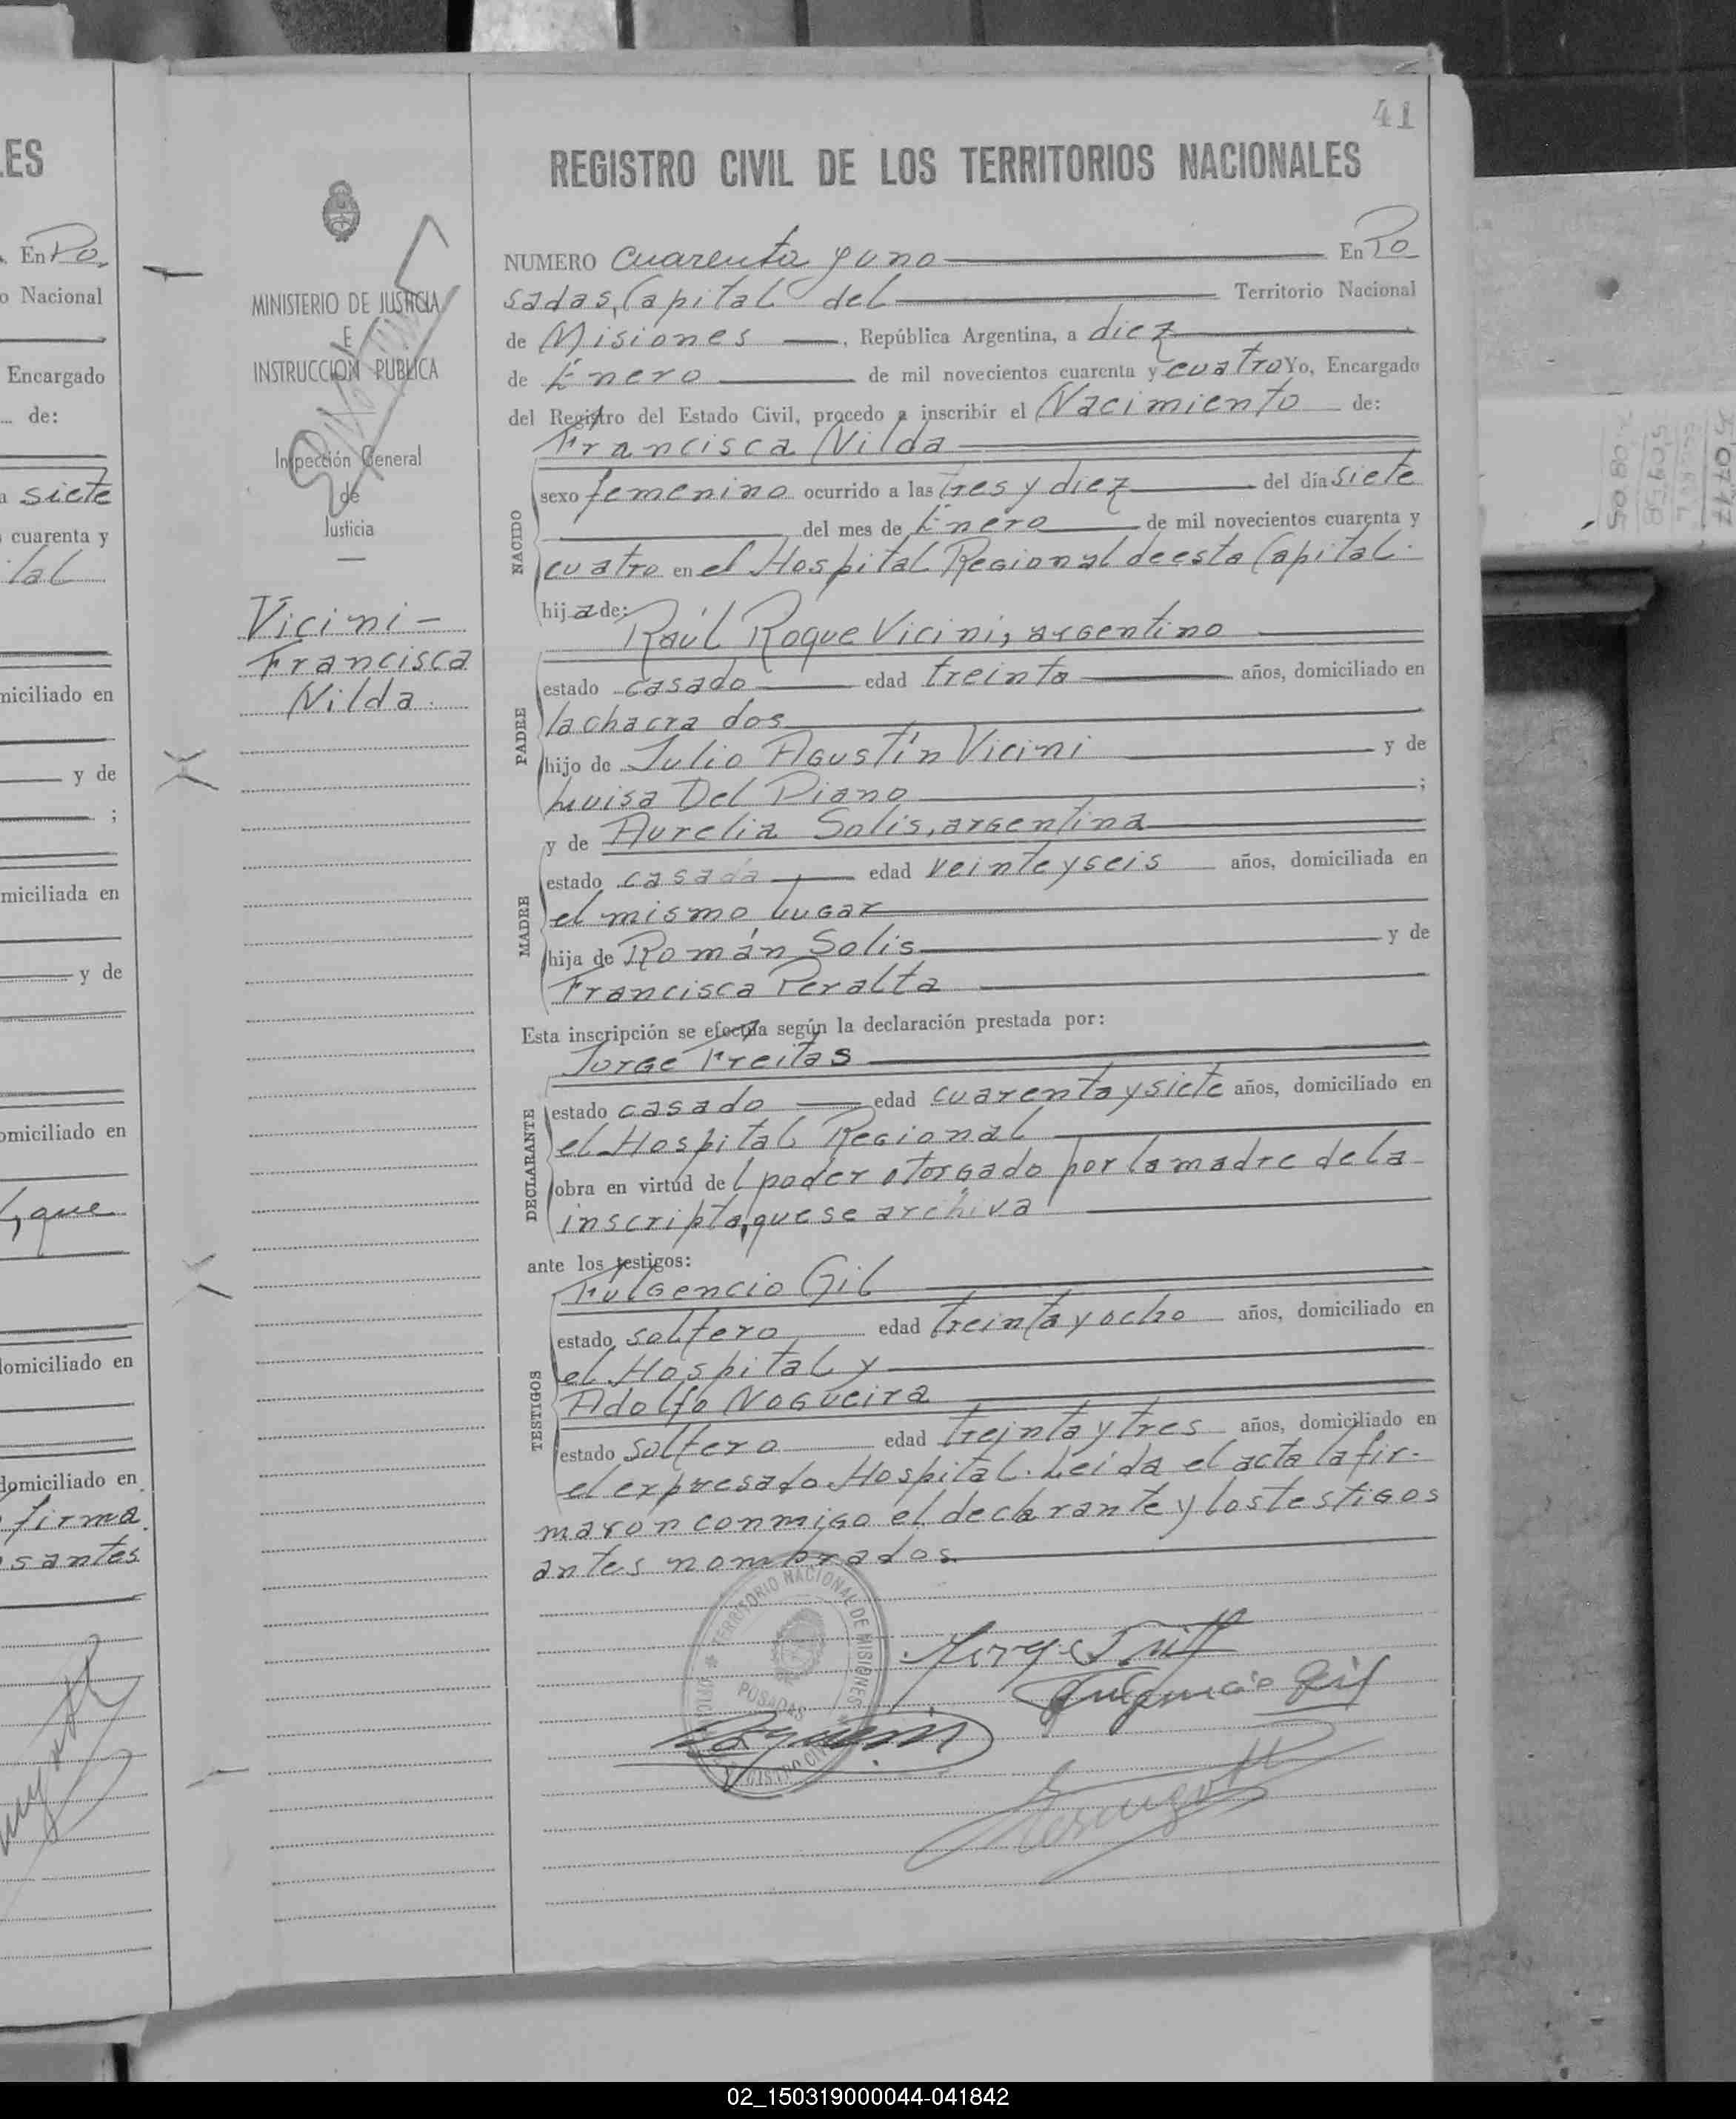 41
REGISTRO CIVIL DE LOS TERRITORIOS NACIONALES
NUMERO cuarenta y uno En Po
sadas, Capital del Territorio Nacional
de Misiones, República Argentina, a diez
de Enero de mil novecientos cuarenta y cuatro Yo, Encargado
del Registro del Estado Civil, procedo a inscribir el Nacimiento de:
Francisca Nilda
NACIDO
sexo femenino ocurrido a las tres y diez del día siete
del mes de Enero de mil novecientos cuarenta y
cuatro en el Hospital Regional de esta Capital.
hija de:
Raúl Roque Vicini, argentino
PADRE
estado casado edad treinta años, domiciliado en
la chacra dos
hijo de Julio Agustín Vicini y de
Luisa Del Piano ;
y de Aurelia Solis, argentina
MADRE
estado casada edad veinte y seis años, domiciliada en
el mismo lugar
hija de Román Solis y de
Francisca Peralta
Esta inscripción se efectúa según la declaración prestada por:
Jorge Freitas
DECLARANTE
estado casado edad cuarenta y siete años, domiciliado en
el Hospital Regional
obra en virtud del poder otorgado por la madre de la
inscripta, que se archiva
ante los testigos:
Fulgencio Gil
TESTIGOS
estado soltero edad treinta y ocho años, domiciliado en
el Hospital y
Adolfo Nogueira
estado soltero edad treinta y tres años, domiciliado en
el expresado Hospital. Leida el acta la fir-
maron conmigo el declarante y los testigos
antes nombrados.
TERRITORIO NACIONAL DE MISIONES
POSADAS
REGISTRO CIVIL
Fulgencio Gil
MINISTERIO DE JUSTICIA
E
INSTRUCCION PUBLICA
Inspección General
de
Justicia
Vicini-
Francisca
Nilda.
LES
En Po
o Nacional
Encargado
de:
a siete
cuarenta y
tal
miciliado en
y de
;
miciliada en
y de
omiciliado en
, que
domiciliado en
domiciliado en
firma
santes
02_150319000044-041842